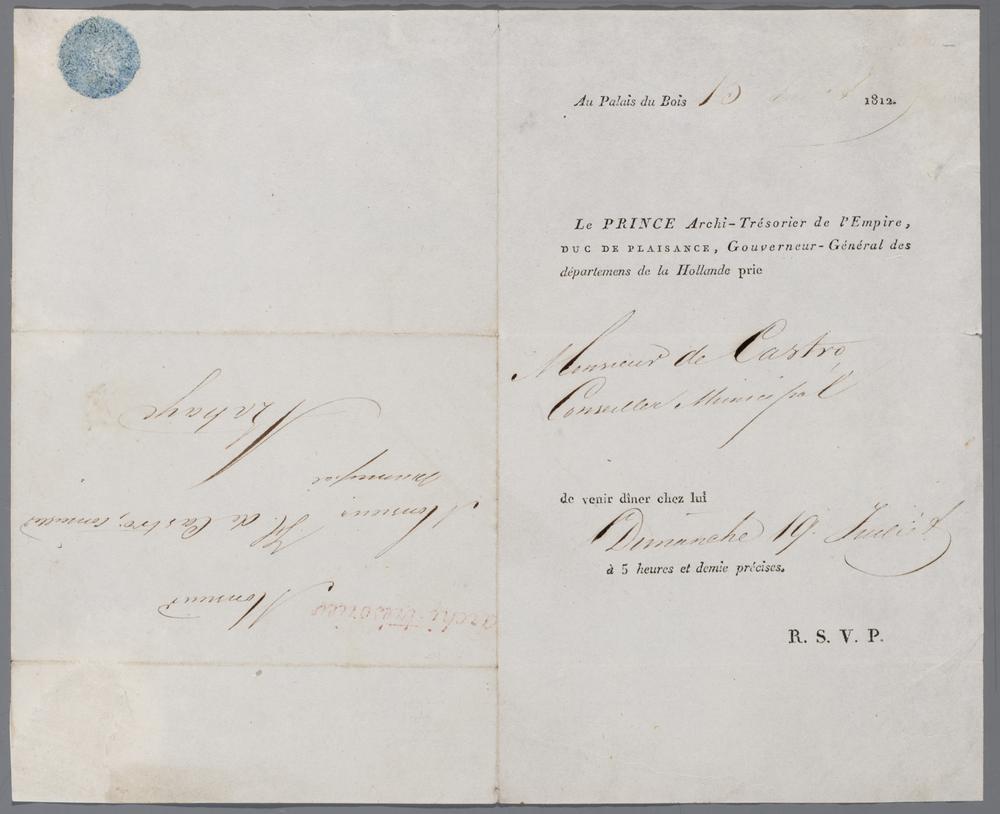 Au Palais du Bois 15 1812.
Le PRINCE Archi-Trésorier de l'Empire,
DUC DE PLAISANCE, Gouverneur-Général des
départemens de la Hollande prie
Monsieur de Castro
Conseiller Municipal
de venir dîner chez lui
Dimanche 19. Juillet
à 5 heures et demie précises.
R. S. V. P.
archi-trésorier
Monsieur
Monsieur H. de Castro, conseiller
municipal
La haye